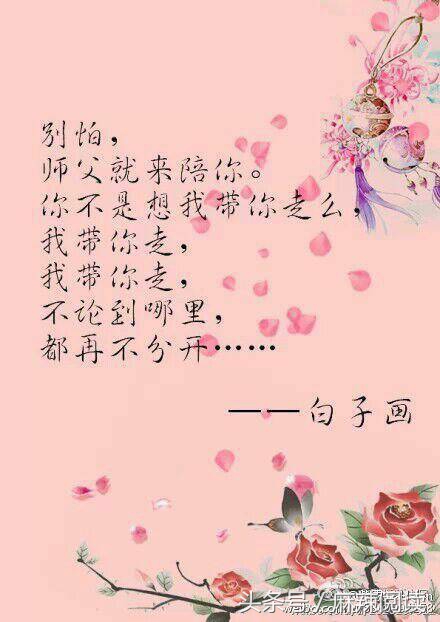 别怕，
师父就来陪你。
你不是想我带你走么，
我带你走，
我带你走，
不论到哪里，
都再不分开……
——白子画
头条号/麻辣阅读